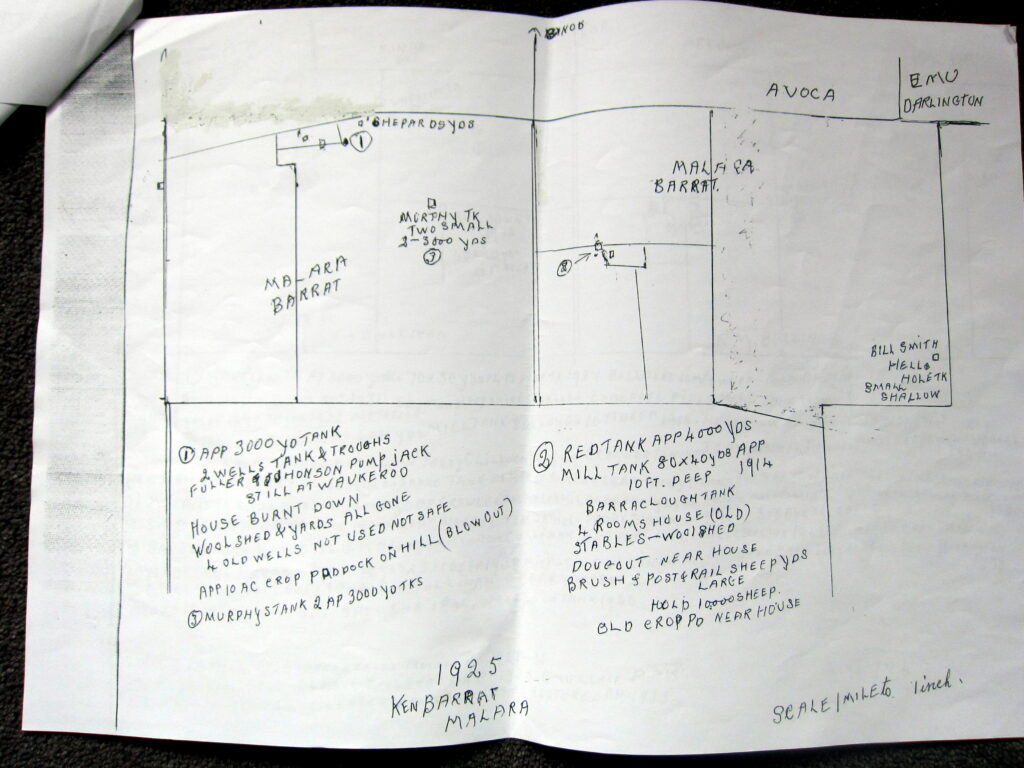 AVOCA
EMU
DARLINGTON
SHEPARDSYDS
①
MALARA
BARRAT.
MURPHY TK
TWO SMALL
2-3000 YDS
③
②
MALARA
BARRAT
BILL SMITH
HELLS
HOLE TK
SMALL
SHALLOW
① APP 3000 YD TANK
2 WELLS TANK & TROUGHS
FULLER JOHONSON PUMP JACK
STILL AT WAUKEROO
HOUSE BURNT DOWN
WOOLSHED & YARDS ALL GONE
4 OLD WELLS NOT USED NOT SAFE
APP 10 AC CROP PADDOCK ON HILL (BLOW OUT)
③ MURPHYS TANK 2 AP 3000 YD TKS
② RED TANK APP 4000 YDS
MILL TANK 80X40 YDS APP
10 FT. DEEP 1914
BARRACLOUGH TANK
4 ROOMS HOUSE (OLD)
STABLES - WOOLSHED
DOUGOUT NEAR HOUSE
BRUSH & POST & RAIL SHEEP YDS
LARGE
HOLD 10,000 SHEEP.
OLD CROP PD NEAR HOUSE
1925
KEN BARRAT
MALARA
SCALE 1 MILE to 1 inch.